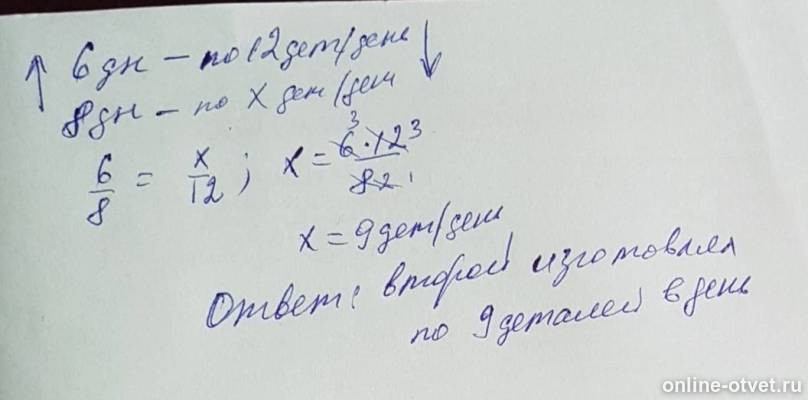 ↑ 6 дн – по 12 дет/день ↓
8 дн – по x дет/день
6/8 = x/12; x = 6·12/8
x = 9 дет/день
Ответ: второй изготовлял
по 9 деталей в день
online-otvet.ru